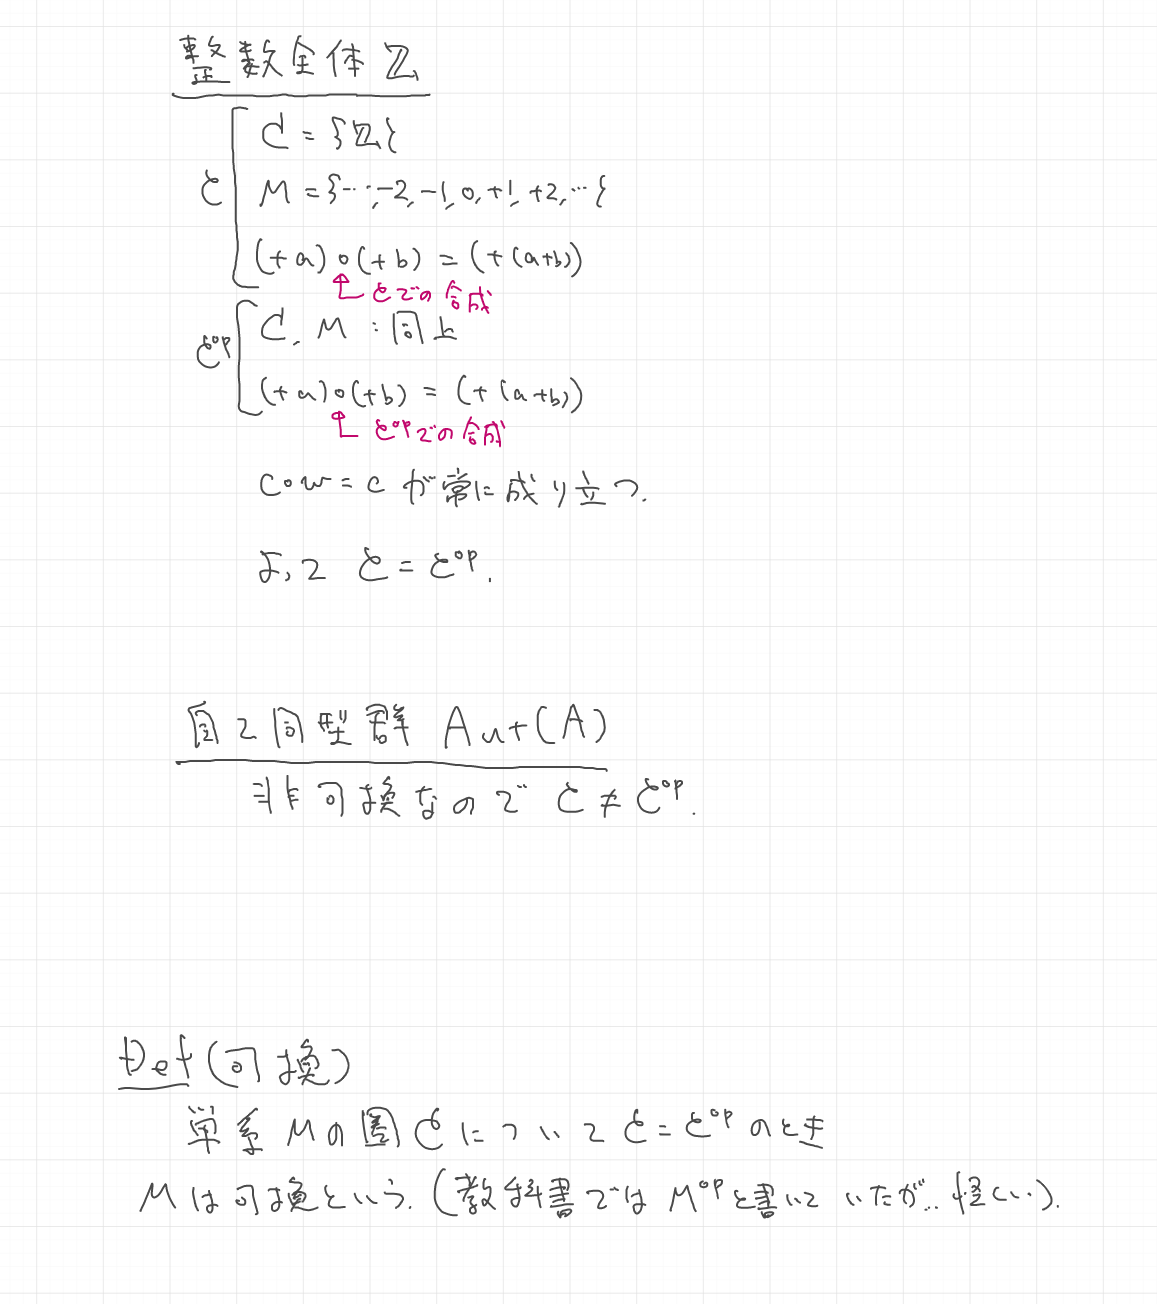 整数全体 ℤ
C = {ℤ}
M = {…, -2, -1, 0, +1, +2, …}
𝓔
(+a)∘(+b) = (+(a+b))
𝓔での合成
𝓔ᵒᵖ
C, M : 同上
(+a)∘(+b) = (+(a+b))
𝓔ᵒᵖでの合成
が常に成り立つ.
よって 𝓔 = 𝓔ᵒᵖ.
自己同型群 Aut(A)
非可換なので 𝓔 ≠ 𝓔ᵒᵖ.
Def (可換)
単系 M の圏 𝓔 について 𝓔 = 𝓔ᵒᵖ のとき
M は可換という. (教科書では Mᵒᵖ と書いていたが.. 怪しい).